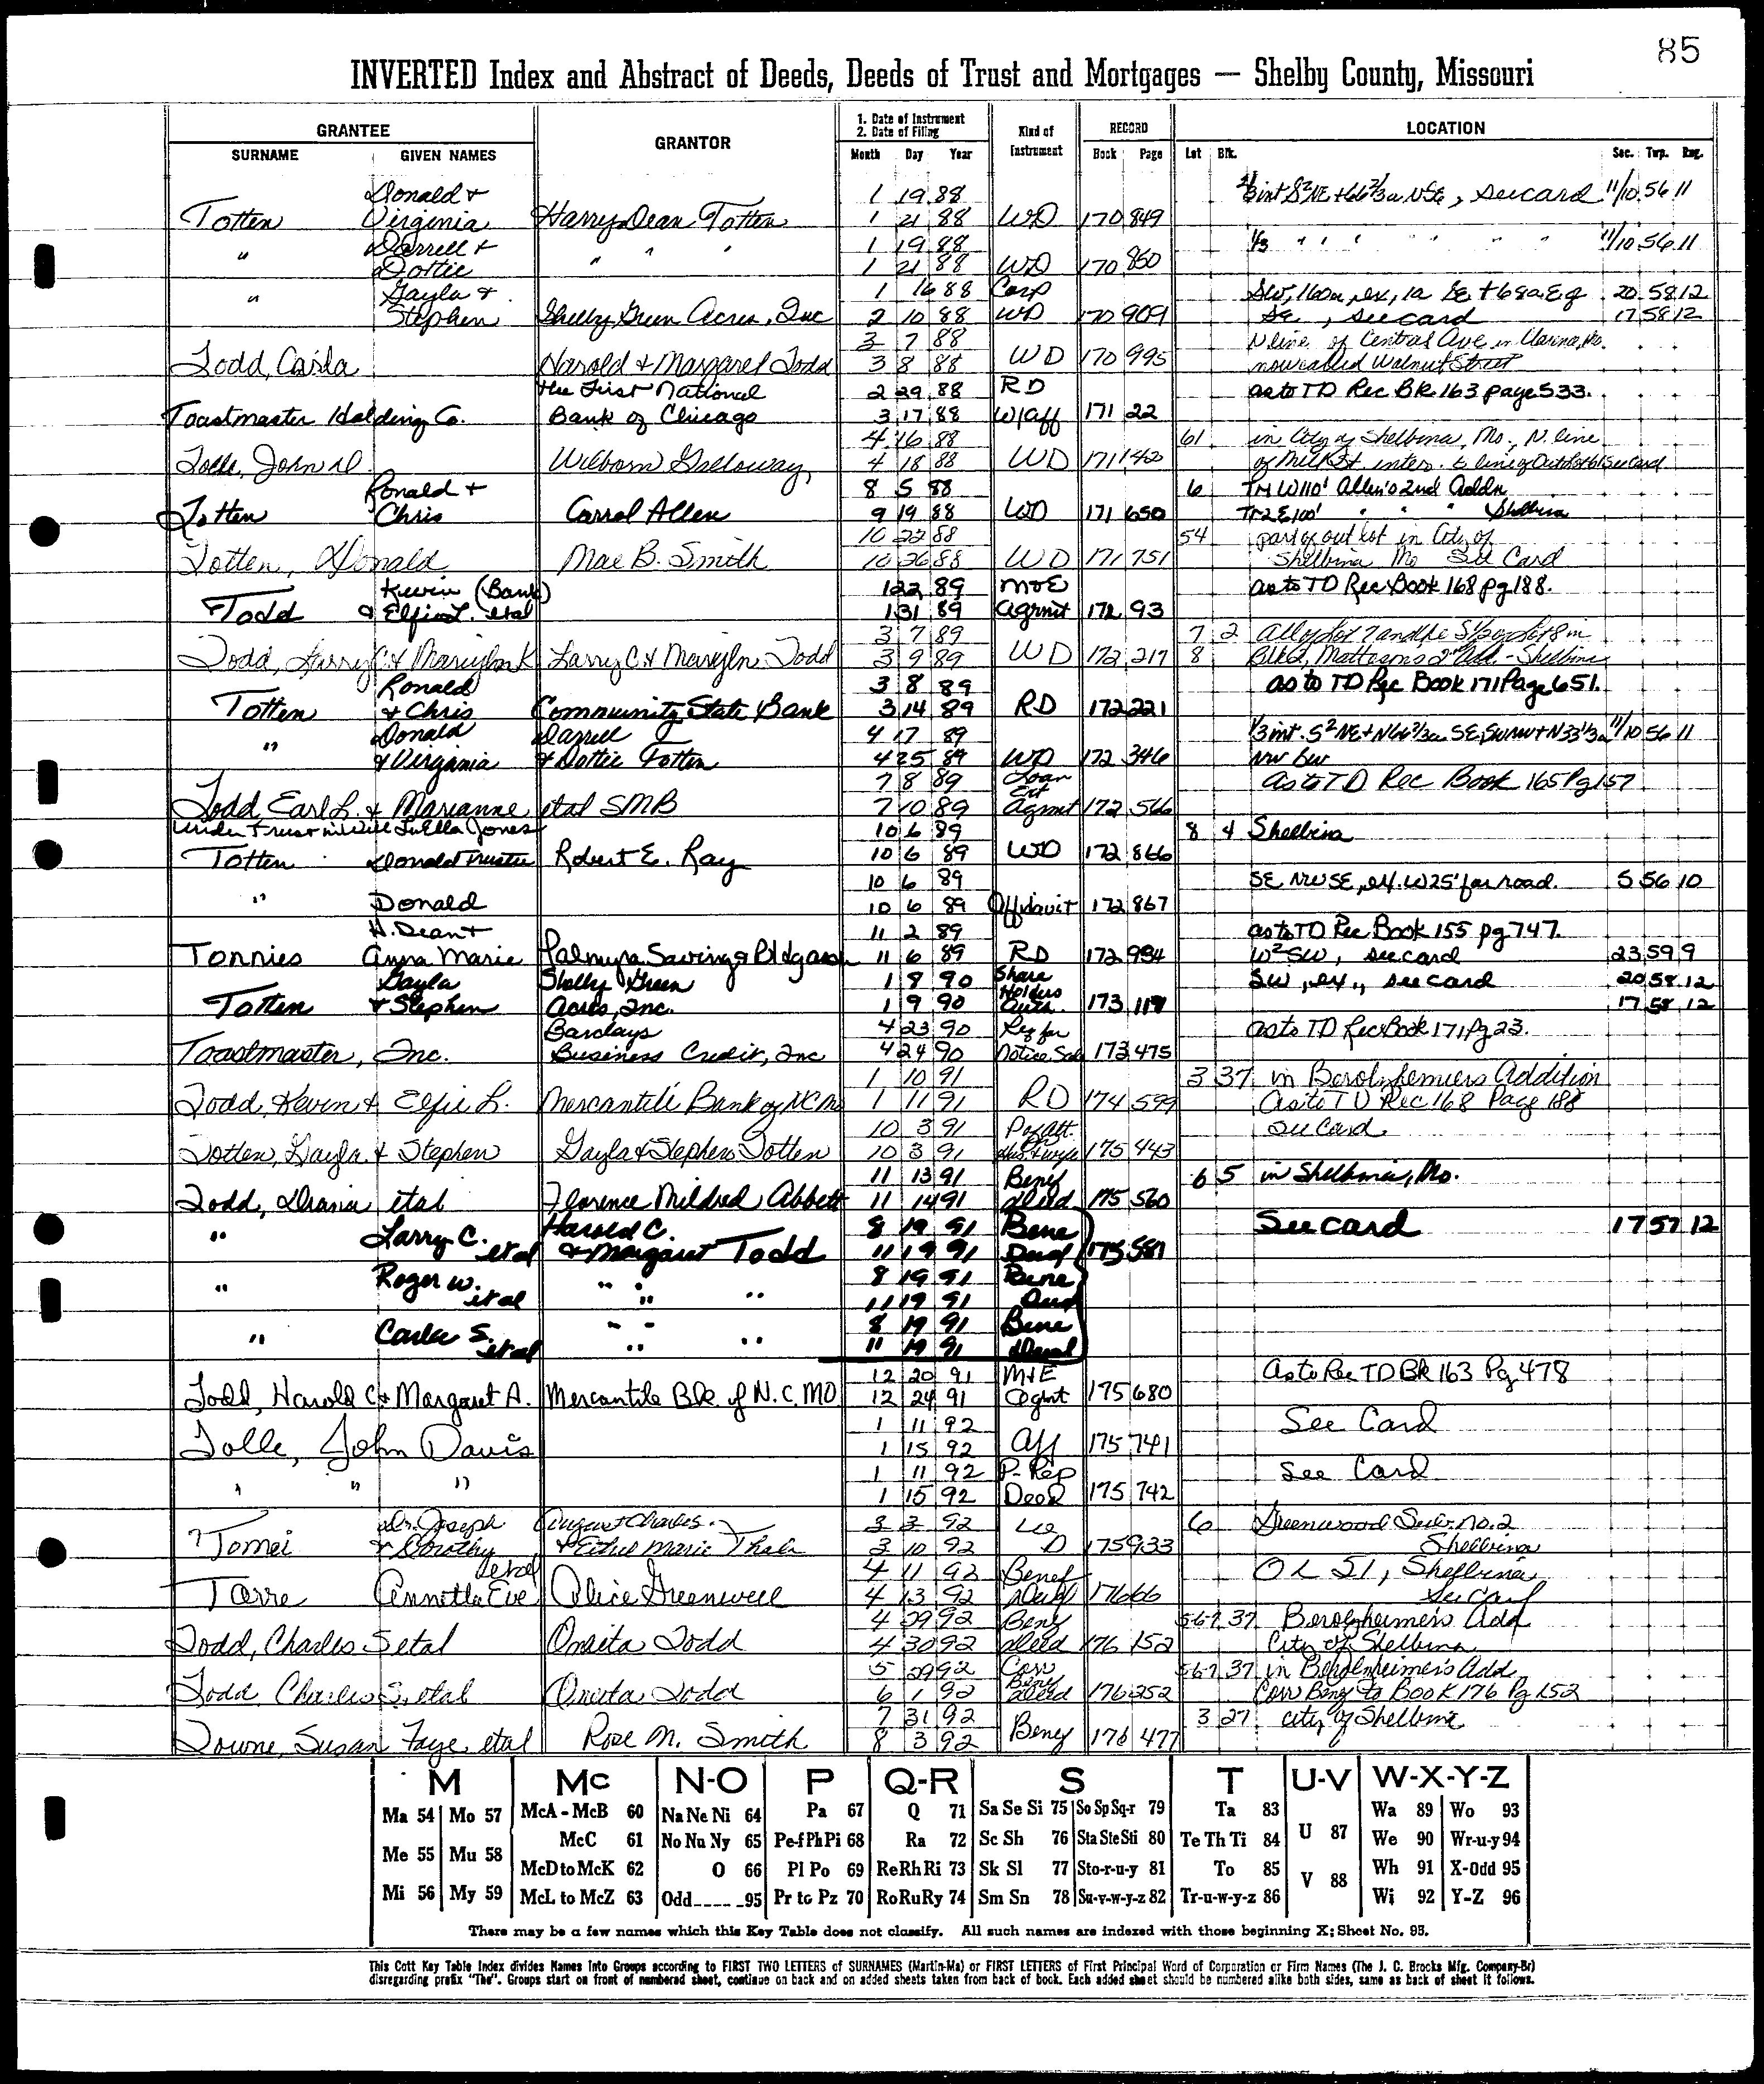 85
INVERTED Index and Abstract of Deeds, Deeds of Trust and Mortgages — Shelby County, Missouri
GRANTEE GRANTOR 1. Date of Instrument 2. Date of Filing Kind of Instrument RECORD LOCATION
SURNAME GIVEN NAMES Month Day Year Book Page Lot Blk. Sec. Twp. Rng.
Donald + 1 19 88 1/3 int S²NE + 66 2/3 a NSE, see card 11/10 56 11
Totten Virginia Harry Dean Totten 1 21 88 WD 170 849
Darrell + 1 19 88 1/3 " " " " " " 11/10 56 11
" Dottie " " " 1 21 88 WD 170 850
Gayla + 1 16 88 Corp SW, 160a, ex, 1a SE + 68a E of 20 58 12
" Stephen Shelby Green Acres, Inc 2 10 88 WD 170 909 SE, see card 17 58 12
3 7 88 N line of Central Ave in Clarina, Mo.
Todd, Carla Harold & Margaret Todd 3 8 88 WD 170 995 now called Walnut Street
The First National 2 29 88 RD as to TD Rec BK 163 page 533.
Toastmaster Holding Co. Bank of Chicago 3 17 88 W/aff 171 22
4 16 88 61 in City of Shelbina, Mo., N. line
Tolle, John D. Wilborn Galloway, 4 18 88 WD 171 142 of Mill St. inters. E line of Outlot 61 See Card
Ronald + 8 5 88 6 Tr 1 W110' Allen's 2nd Addn
Totten Chris Carrol Allen 9 19 88 WD 171 650 Tr 2 E100' " " " Shelbina
10 22 88 54 part of out lot in City of
Totten, Donald Mae B. Smith 10 26 88 WD 171 751 Shelbina Mo See Card
Kevin (Bank) 1 22 89 M+E as to TD Rec Book 168 pg 188.
Todd & Elfie L. etal 1 31 89 agrmt 172 93
3 7 89 7 2 All of Lot 7 and the S 1/2 of Lot 8 in
Todd, Larry C. & Marilyn K Larry C. & Marilyn Todd 3 9 89 WD 172 217 8 Blk 2, Matterson's 2nd Add. - Shelbina
Ronald 3 8 89 as to TD Rec Book 171 Page 651.
Totten & Chris Community State Bank 3 14 89 RD 172 221
Donald Darrell 4 17 89 1/3 int. S²NE + N66 2/3a SE, SWNW + N33 1/3a 11/10 56 11
" & Virginia & Dottie Totten 4 25 89 WD 172 346 NW SW
7 8 89 Loan Ext As to TD Rec Book 165 Pg 157
Todd, Earl L. & Marianne etal SMB 7 10 89 Agmt 172 566
Under Trust in Will LuElla Jones 10 6 89 8 4 Shelbina
Totten Donald Trustee Robert E. Ray 10 6 89 WD 172 866
10 6 89 SE NWSE, ex. W25' for road. 5 56 10
" Donald 10 6 89 Affidavit 172 867
H. Dean + 11 2 89 as to TD Rec Book 155 pg 747.
Tonnies Anna Marie Palmyra Savings & Bldg assn 11 6 89 RD 172 934 W²SW, see card 23 59 9
Gayla Shelby Green 1 8 90 Share SW, ex., see card 20 58 12
Totten & Stephen Acres, Inc. 1 9 90 Holders Auth. 173 119 17 58 12
Barclays 4 23 90 Req for as to TD Rec Book 171 Pg 23.
Toastmaster, Inc. Business Credit, Inc 4 24 90 Notice Sale 173 475
1 10 91 3 37 in Berolzhemiers Addition
Todd, Kevin & Elfie L. Mercantile Bank of NC Mo 1 11 91 RD 174 599 As to TD Rec 168 Page 188
10 3 91 Pof Att. See Card
Totten, Gayla & Stephen Gayla & Stephen Totten 10 3 91 Hus & wife 175 443
11 13 91 Benef 6 5 in Shelbina, Mo.
Todd, Diana etal Florence Mildred Abbett 11 14 91 Deed 175 560
" Larry C. Harold C. 8 19 91 Bene See card 17 57 12
etal & Margaret Todd 11 19 91 Deed 175 581
Roger W. 8 19 91 Bene
" etal " " " 11 19 91 Deed
" Carla S. " " 8 19 91 Bene
etal " " 11 19 91 Deed
12 20 91 M+E As to Rec TD BK 163 Pg 478
Todd, Harold C & Margaret A. Mercantile Bk. of N.C. MO 12 24 91 Agmt 175 680
1 11 92 See Card
Tolle, John Davis 1 15 92 Aff 175 741
1 11 92 P-Rep See Card
" " " 1 15 92 Deed 175 742
Dr. Joseph August Charles 3 3 92 W 6 Greenwood Sub. No. 2
Tomei & Dorothy & Ethel Marie Thale 3 10 92 D 175 933 Shelbina
etal 4 11 92 Benef OL 51, Shelbina
Torre Annetta Eve Alice Greenwell 4 13 92 Deed 176 66 See Card
4 29 92 Benf 5-6-7 37 Berolzheimer's Add
Todd, Charles S etal Oneita Todd 4 30 92 Deed 176 152 City of Shelbina
5 29 92 Corr 5-6-7 37 in Berolzheimer's Add
Todd, Charles S. etal Oneita Todd 6 1 92 Bene Deed 176 352 Corr Benf to Book 176 Pg 152
7 31 92 3 27 City of Shelbina
Towne, Susan Faye etal Rose M. Smith 8 3 92 Benf 176 477
M Mc N-O P Q-R S T U-V W-X-Y-Z
Ma 54 Mo 57 McA - McB 60 Na Ne Ni 64 Pa 67 Q 71 Sa Se Si 75 So Sp Sq-r 79 Ta 83 Wa 89 Wo 93
McC 61 No Nu Ny 65 Pe-f Ph Pi 68 Ra 72 Sc Sh 76 Sta Ste Sti 80 Te Th Ti 84 U 87 We 90 Wr-u-y 94
Me 55 Mu 58 McD to McK 62 O 66 Pl Po 69 Re Rh Ri 73 Sk Sl 77 Sto-r-u-y 81 To 85 V 88 Wh 91 X-Odd 95
Mi 56 My 59 McL to McZ 63 Odd_____95 Pr to Pz 70 Ro Ru Ry 74 Sm Sn 78 Su-v-w-y-z 82 Tr-u-w-y-z 86 Wi 92 Y-Z 96
There may be a few names which this Key Table does not classify. All such names are indexed with those beginning X; Sheet No. 95.
This Cott Key Table Index divides Names into Groups according to FIRST TWO LETTERS of SURNAMES (Martin-Ma) or FIRST LETTERS of First Principal Word of Corporation or Firm Names (The J. C. Brocks Mfg. Company-Br)
disregarding prefix "The". Groups start on front of numbered sheet, continue on back and on added sheets taken from back of book. Each added sheet should be numbered alike both sides, same as back of sheet it follows.